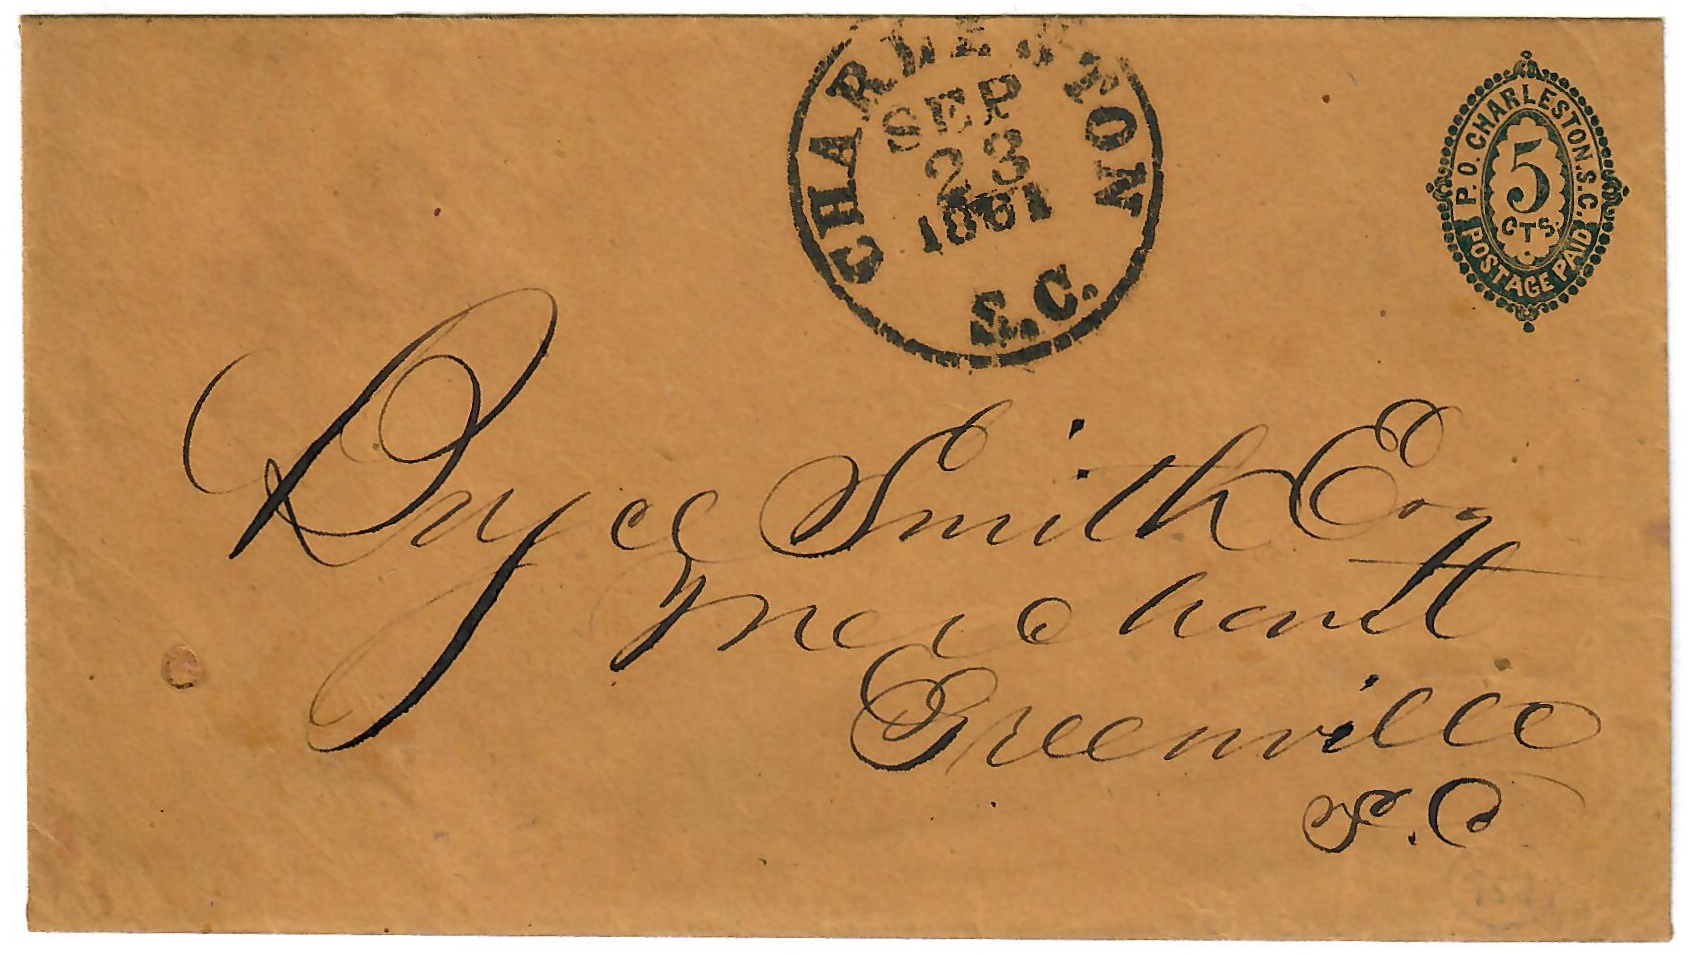 CHARLESTON
SEP
23
1861
S.C.
P.O. CHARLESTON. S.C.
5
CTS.
POSTAGE PAID
Smith Esq
Merchant
Greenville
S.C